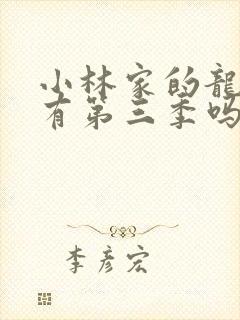 小林家的龍
有第三季吗
李彦宏